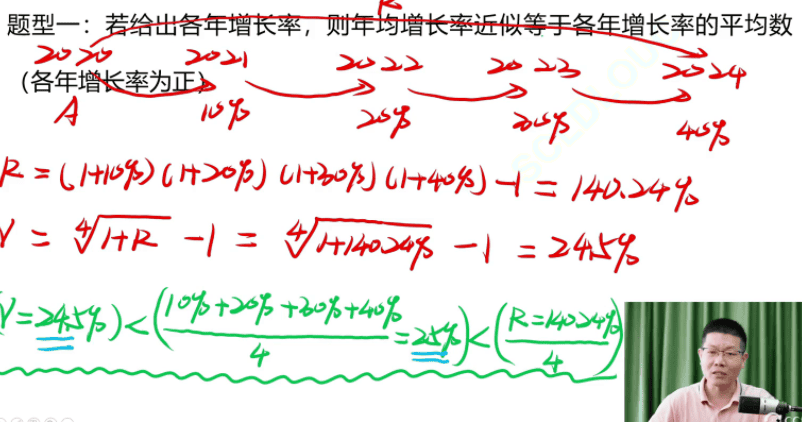 题型一：若给出各年增长率，则年均增长率近似等于各年增长率的平均数
R
2020 2021 2022 2023 2024
（各年增长率为正）
A 10% 20% 30% 40%
R = (1+10%) (1+20%) (1+30%) (1+40%) -1 = 140.24%
r = ∜(1+R) -1 = ∜(1+140.24%) -1 = 24.5%
(r=24.5%) < ((10%+20%+30%+40%)/4 = 25%) < (R=140.24%/4)